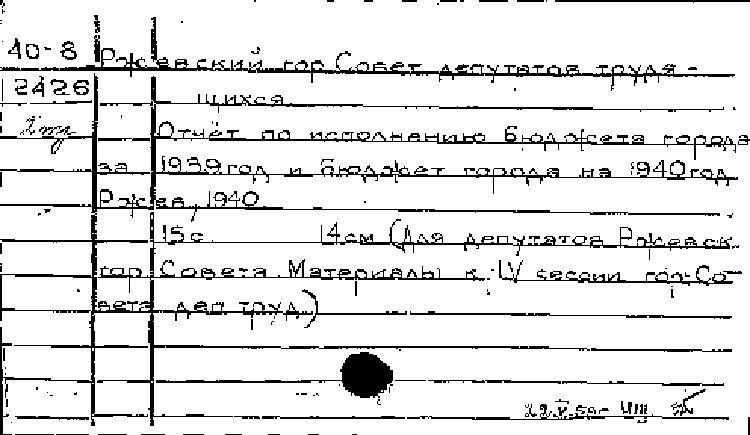 40-8 Ржевский гор Совет депутатов трудя-
2426 щихся
Отчёт по исполнению бюджета города
за 1939 год и бюджет города на 1940 год
Ржев, 1940
15 с. 14 см (Для депутатов Ржевск.
гор. Совета. Материалы к LV сессии гор. Со-
вета деп труд.)
22.V.50